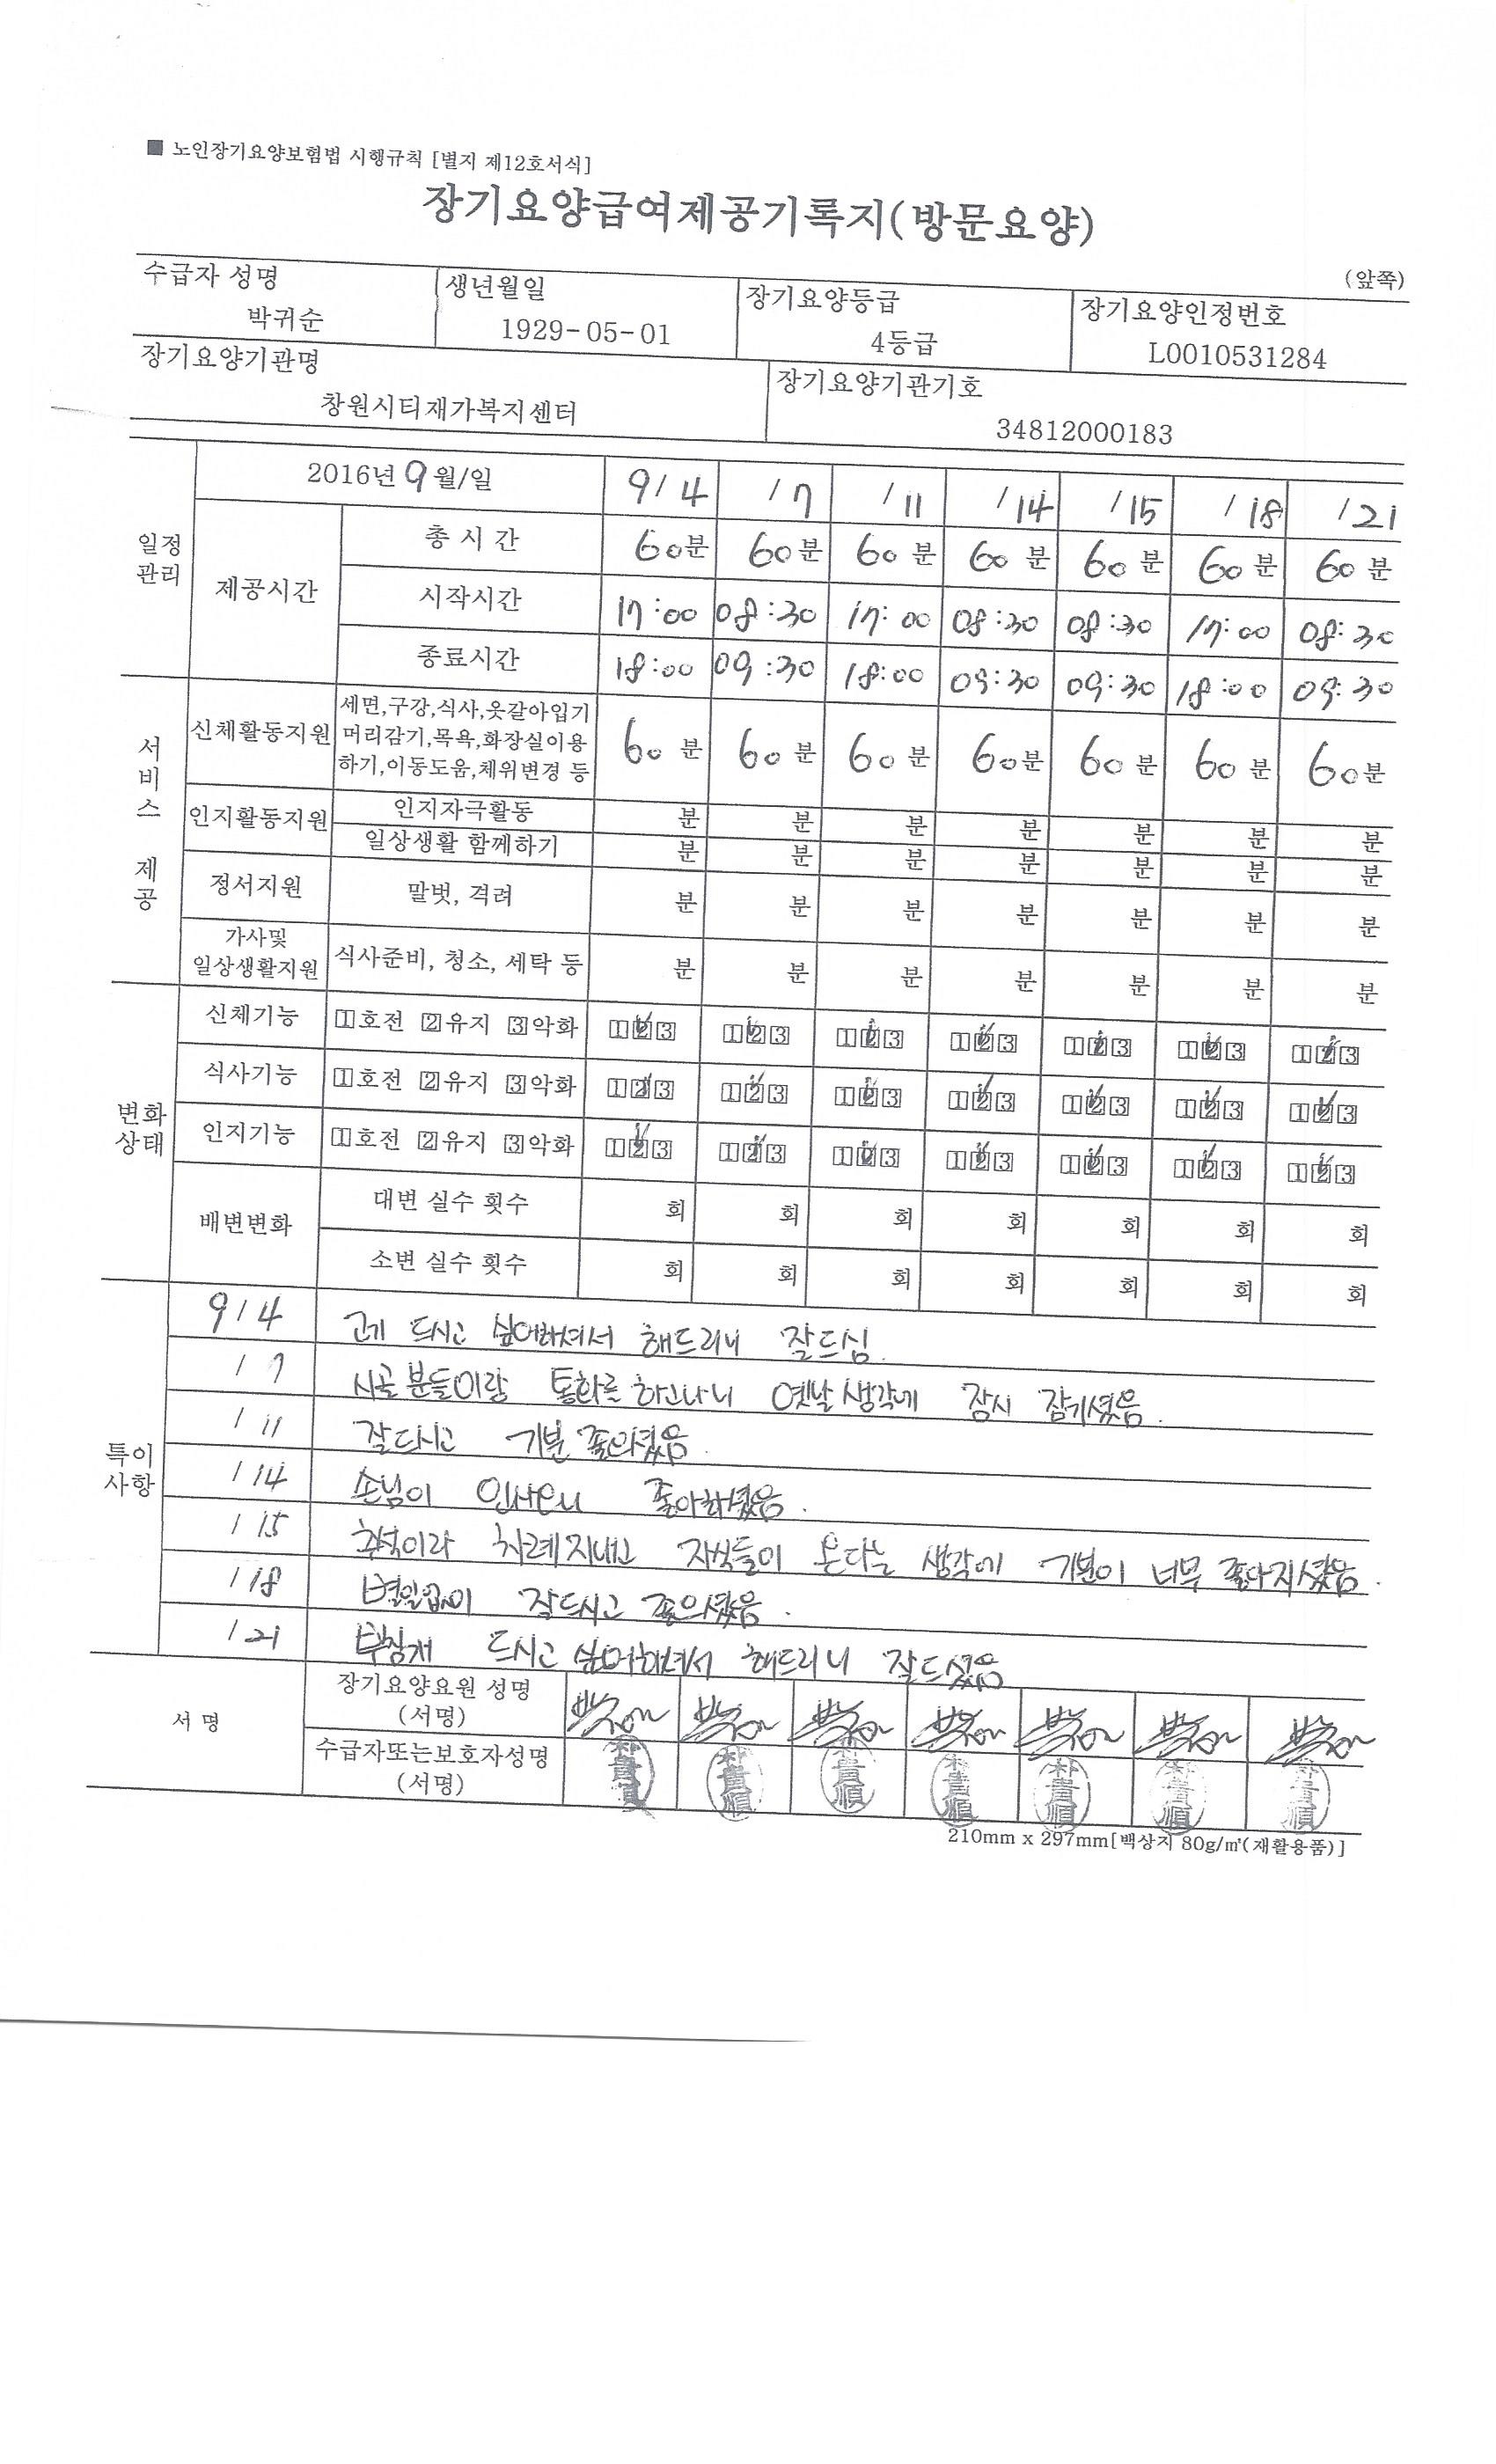 ■ 노인장기요양보험법 시행규칙 [별지 제12호서식]
장기요양급여제공기록지(방문요양)
(앞쪽)
수급자 성명 생년월일 장기요양등급 장기요양인정번호
박귀순 1929-05-01 4등급 L0010531284
장기요양기관명 장기요양기관기호
창원시티재가복지센터 34812000183
일정관리
2016년 9월/일 9/4 /7 /11 /14 /15 /18 /21
제공시간
총 시 간 60분 60분 60분 60분 60분 60분 60분
시작시간 17:00 08:30 17:00 08:30 08:30 17:00 08:30
종료시간 18:00 09:30 18:00 09:30 09:30 18:00 09:30
서비스 제공
신체활동지원 세면,구강,식사,옷갈아입기
머리감기,목욕,화장실이용
하기,이동도움,체위변경 등
60분 60분 60분 60분 60분 60분 60분
인지활동지원 인지자극활동 분 분 분 분 분 분 분
일상생활 함께하기 분 분 분 분 분 분 분
정서지원 말벗, 격려 분 분 분 분 분 분 분
가사및
일상생활지원 식사준비, 청소, 세탁 등 분 분 분 분 분 분 분
변화상태
신체기능 1호전 2유지 3악화 123 123 123 123 123 123 123
식사기능 1호전 2유지 3악화 123 123 123 123 123 123 123
인지기능 1호전 2유지 3악화 123 123 123 123 123 123 123
배변변화
대변 실수 횟수 회 회 회 회 회 회 회
소변 실수 횟수 회 회 회 회 회 회 회
특이사항
9/4 고기 드시고 싶어하셔서 해드리니 잘드심.
/7 시골분들이랑 통화를 하고나니 옛날생각에 잠시 잠기셨음.
/11 잘드시고 기분 좋으셨음.
/14 손님이 인사오니 좋아하셨음.
/15 추석이라 차례지내고 자식들이 온다는 생각에 기분이 너무 좋아지셨음.
/18 별일없이 잘드시고 좋으셨음.
/21 부침개 드시고 싶어하셔서 해드리니 잘드셨음
서 명
장기요양요원 성명
(서명)
수급자또는보호자성명
(서명)
朴貴順 朴貴順 朴貴順 朴貴順 朴貴順 朴貴順 朴貴順
210mm x 297mm[백상지 80g/㎡(재활용품)]